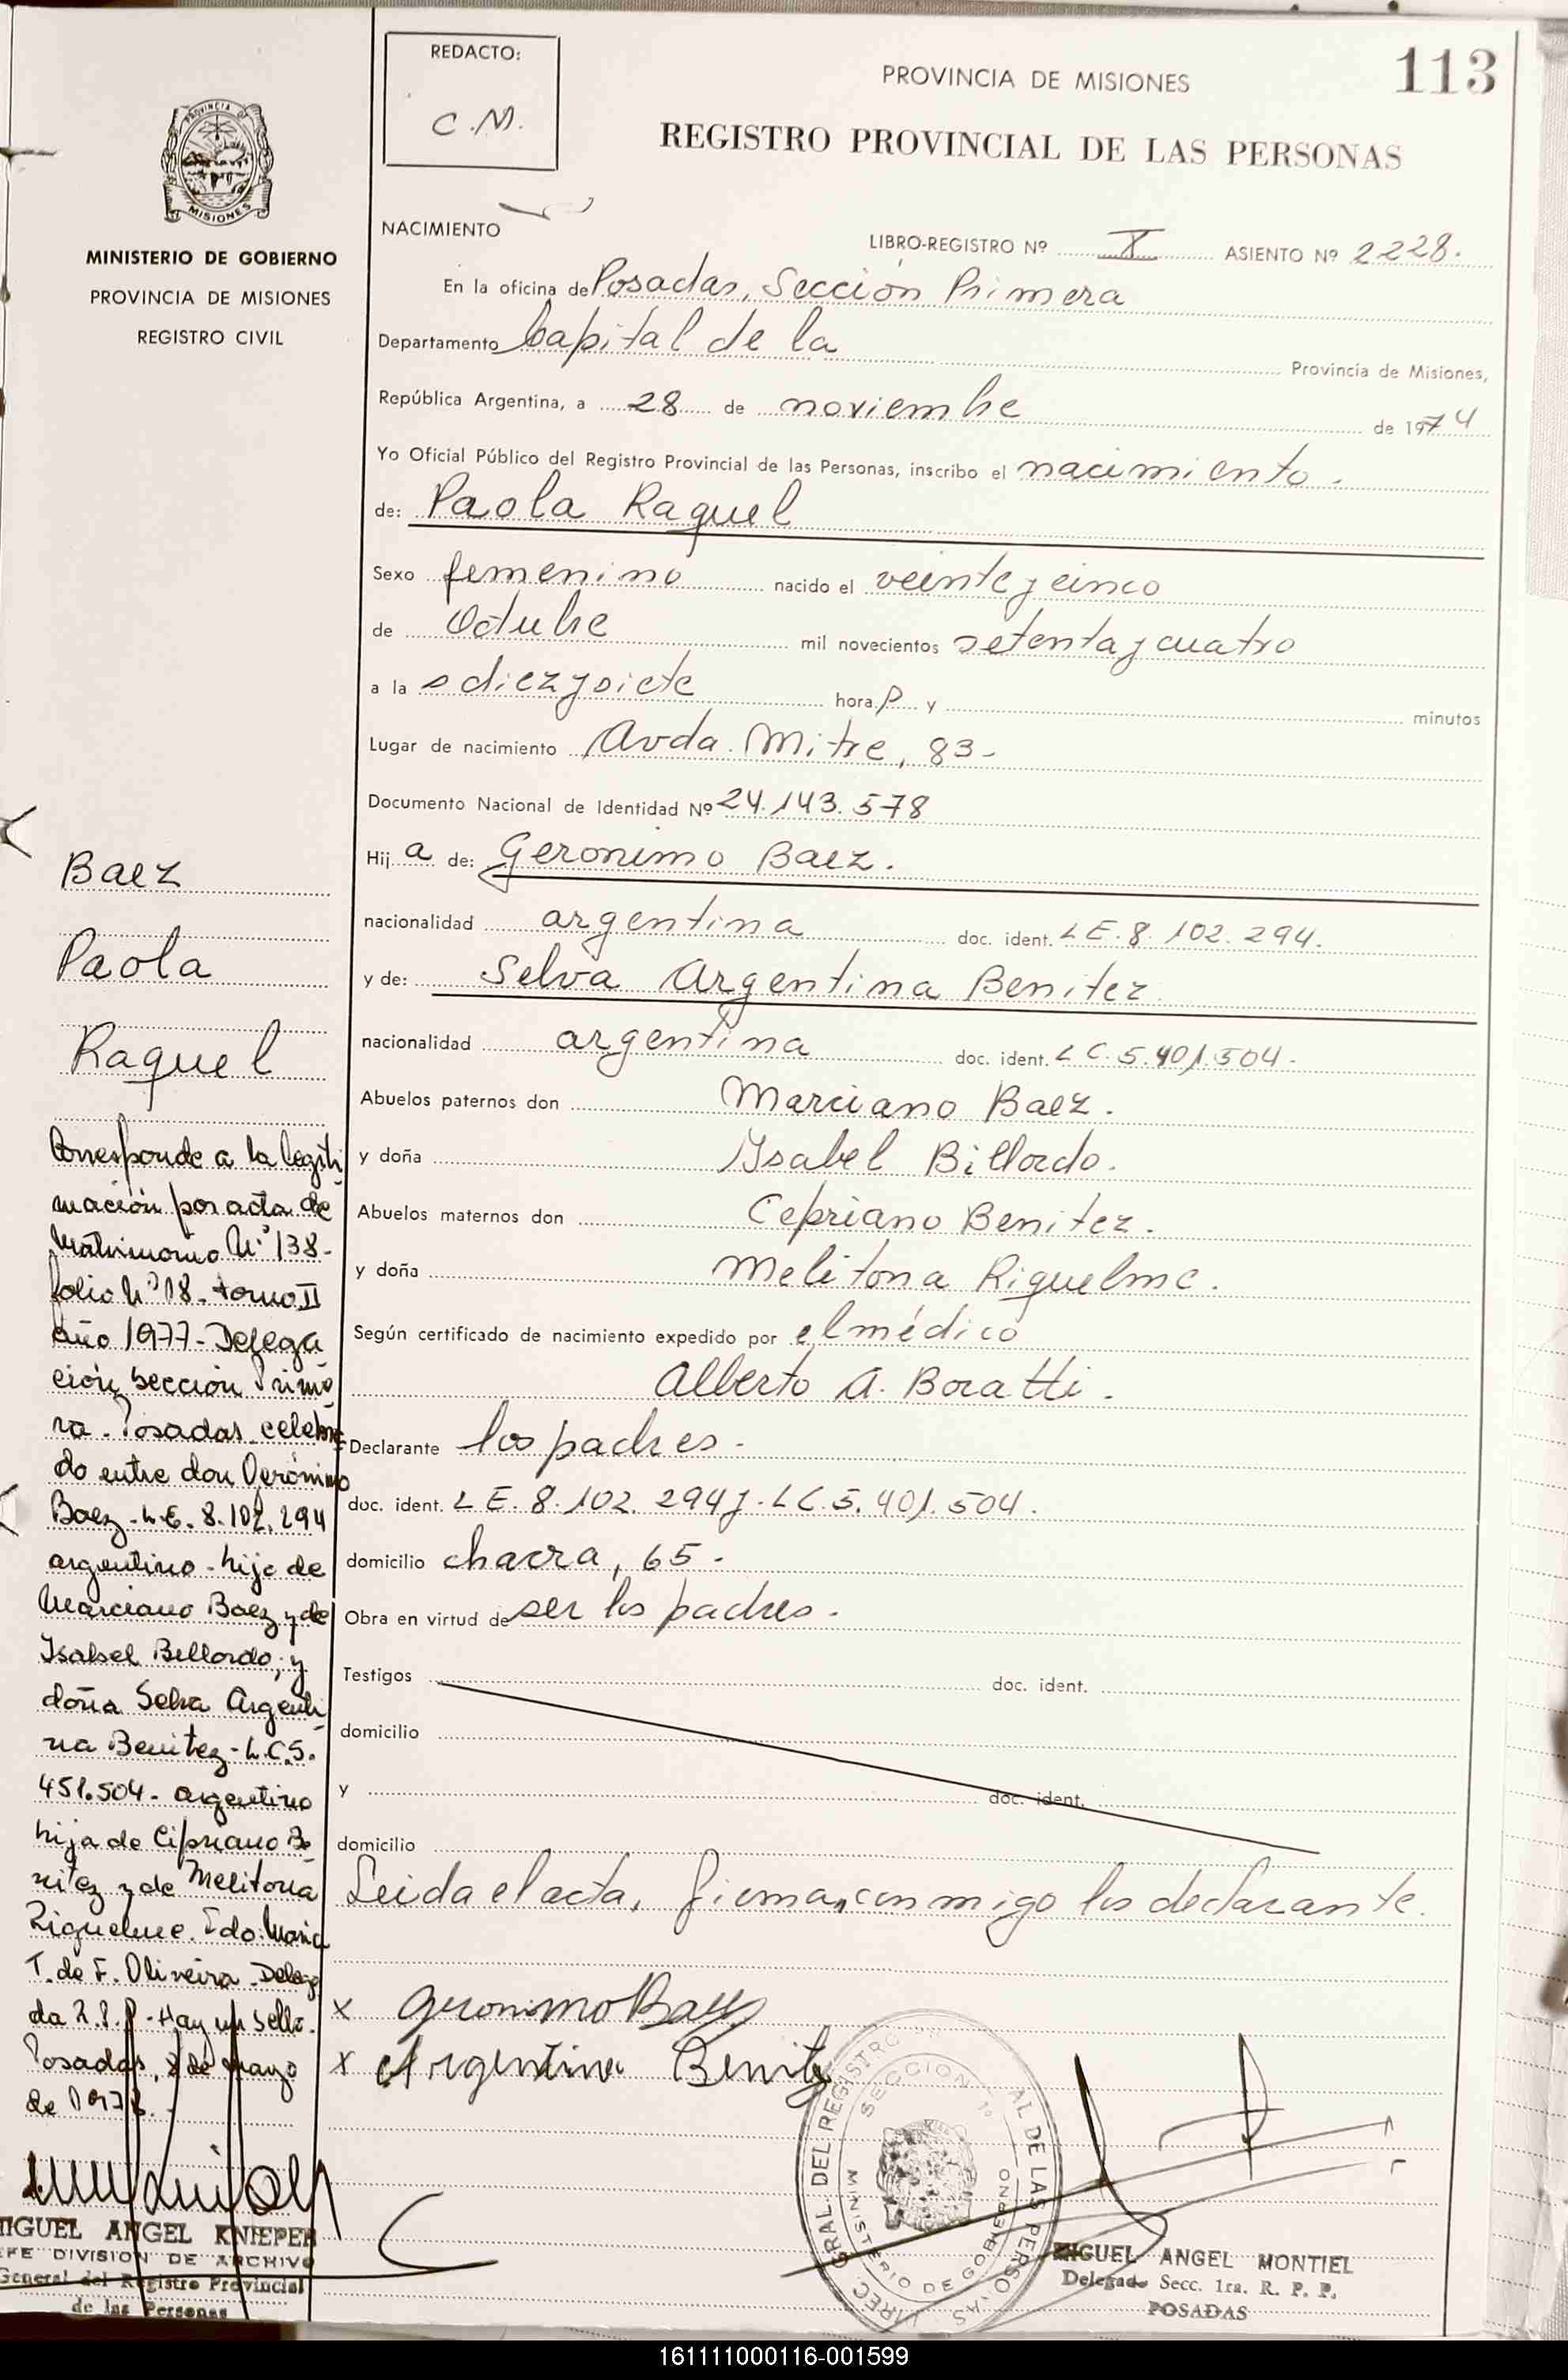 REDACTO:
C.M.
PROVINCIA DE MISIONES
113
REGISTRO PROVINCIAL DE LAS PERSONAS
PROVINCIA DE
MISIONES
MINISTERIO DE GOBIERNO
PROVINCIA DE MISIONES
REGISTRO CIVIL
NACIMIENTO
LIBRO-REGISTRO Nº X ASIENTO Nº 2228.
En la oficina de Posadas, Sección Primera
Departamento Capital de la Provincia de Misiones,
República Argentina, a 28 de noviembre de 1974
Yo Oficial Público del Registro Provincial de las Personas, inscribo el nacimiento.
de: Paola Raquel
Sexo femenino nacido el veinte y cinco
de Octubre mil novecientos setenta y cuatro
a la s diez y siete hora s y minutos
Lugar de nacimiento Avda. Mitre, 83-
Documento Nacional de Identidad Nº 24.143.578
Hij a de: Geronimo Baez.
nacionalidad argentina doc. ident. LE. 8.102.294.
y de: Selva Argentina Benitez
nacionalidad argentina doc. ident. LC. 5.401.504-
Abuelos paternos don Marciano Baez.
y doña Ysabel Billordo.
Abuelos maternos don Cepriano Benitez.
y doña Melitona Riquelme.
Según certificado de nacimiento expedido por el médico
Alberto A. Boratti.
Declarante los padres-
doc. ident. LE. 8.102.294 y-LC.5.401.504.
domicilio chacra, 65.
Obra en virtud de ser los padres.
Testigos doc. ident.
domicilio
y doc. ident.
domicilio
Leida el acta, firman conmigo los declarante.
x Geronimo Baez
x Argentina Benitez
Baez
Paola
Raquel
Corresponde a la legiti
mación por acta de
Matrimonio Nº 138-
folio Nº 18- tomo II
año 1977- Delega
ción Sección Prime
ra- Posadas celebra
do entre don Gerónimo
Baez- L.E. 8.102.294
argentino- hijo de
Marciano Baez y de
Ysabel Bellordo; y
doña Selva Argenti
na Benitez- L.C.5.
451.504- argentino
hija de Cipriano Be
nitez y de Melitona
Riquelme. Fdo: Maria
T. de F. Oliveira- Delega
da R.P.P- Hay un sello.
Posadas, 8 de mayo
de 1978.-
MIGUEL ANGEL KNIEPER
JEFE DIVISION DE ARCHIVO
General del Registro Provincial
de las Personas
DIREC. GRAL DEL REGISTRO AL DE LAS PERSONAS
SECCION 1º
MINISTERIO DE GOBIERNO
MIGUEL ANGEL MONTIEL
Delegado Secc. 1ra. R. P. P.
POSADAS
161111000116-001599